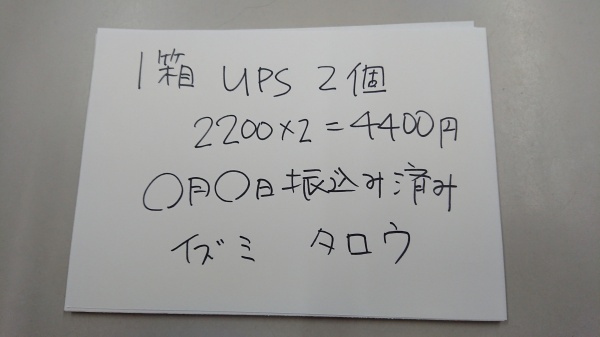 1箱 UPS 2個
2200×2=4400円
〇月〇日振込み済み
イズミ タロウ